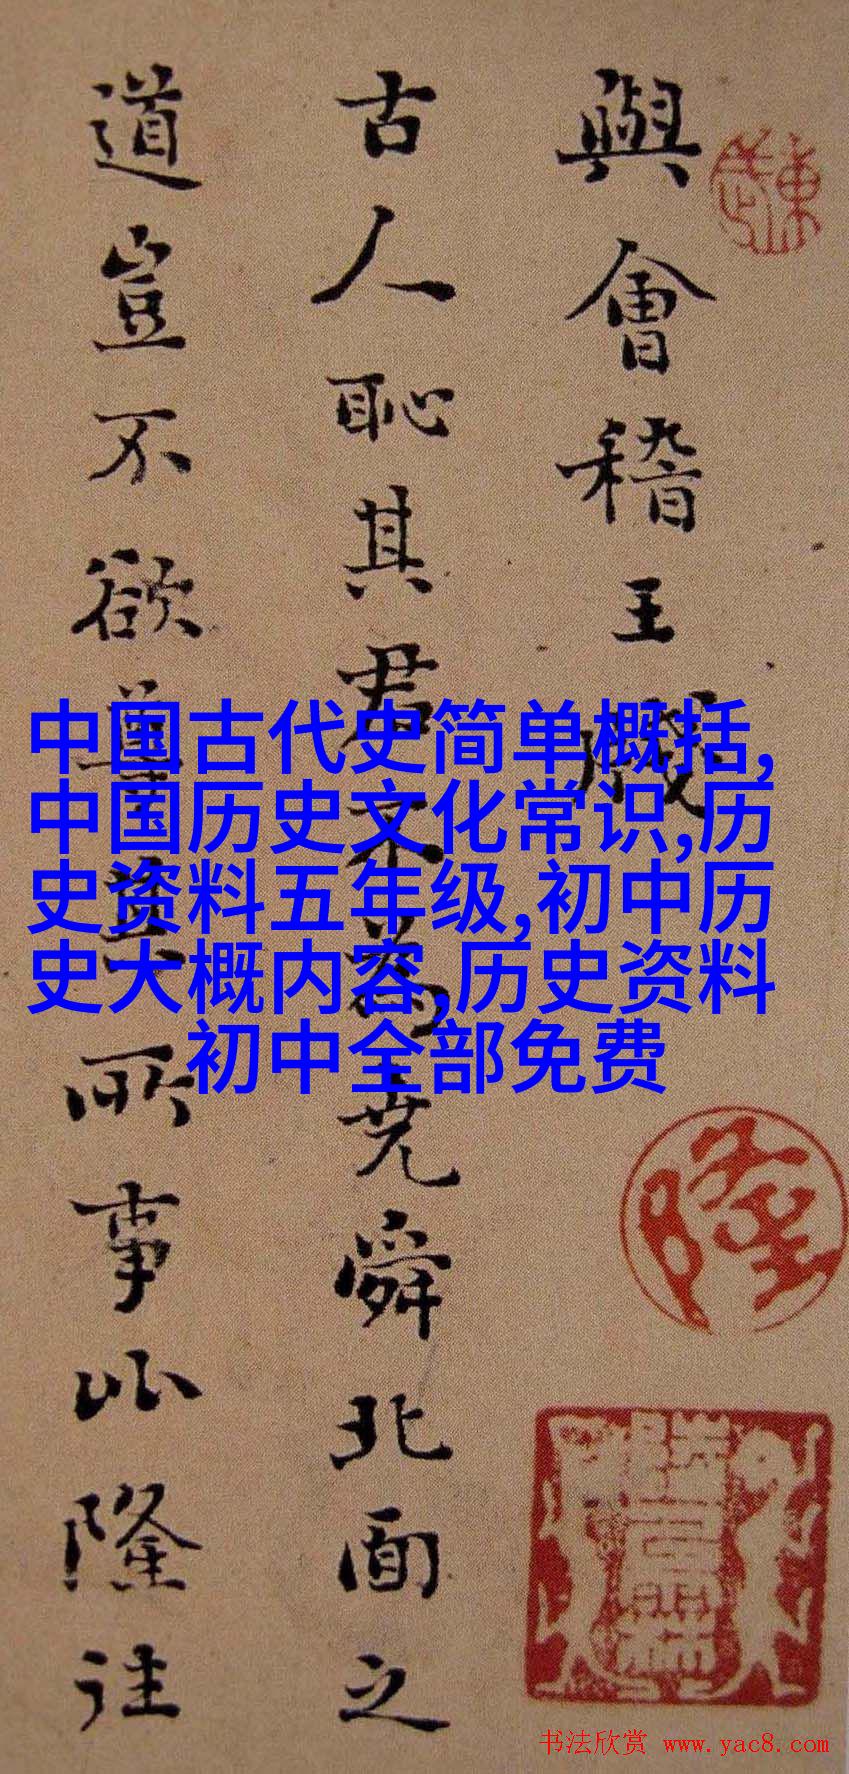 與會稽王牋
古人恥其君不為尭舜北面之
道豈不欲尊其所事比隆往
中国古代史简单概括,
中国历史文化常识,历
史资料五年级,初中历
史大概内容,历史资料
初中全部免费
隆
书法欣赏 www.yac8.com